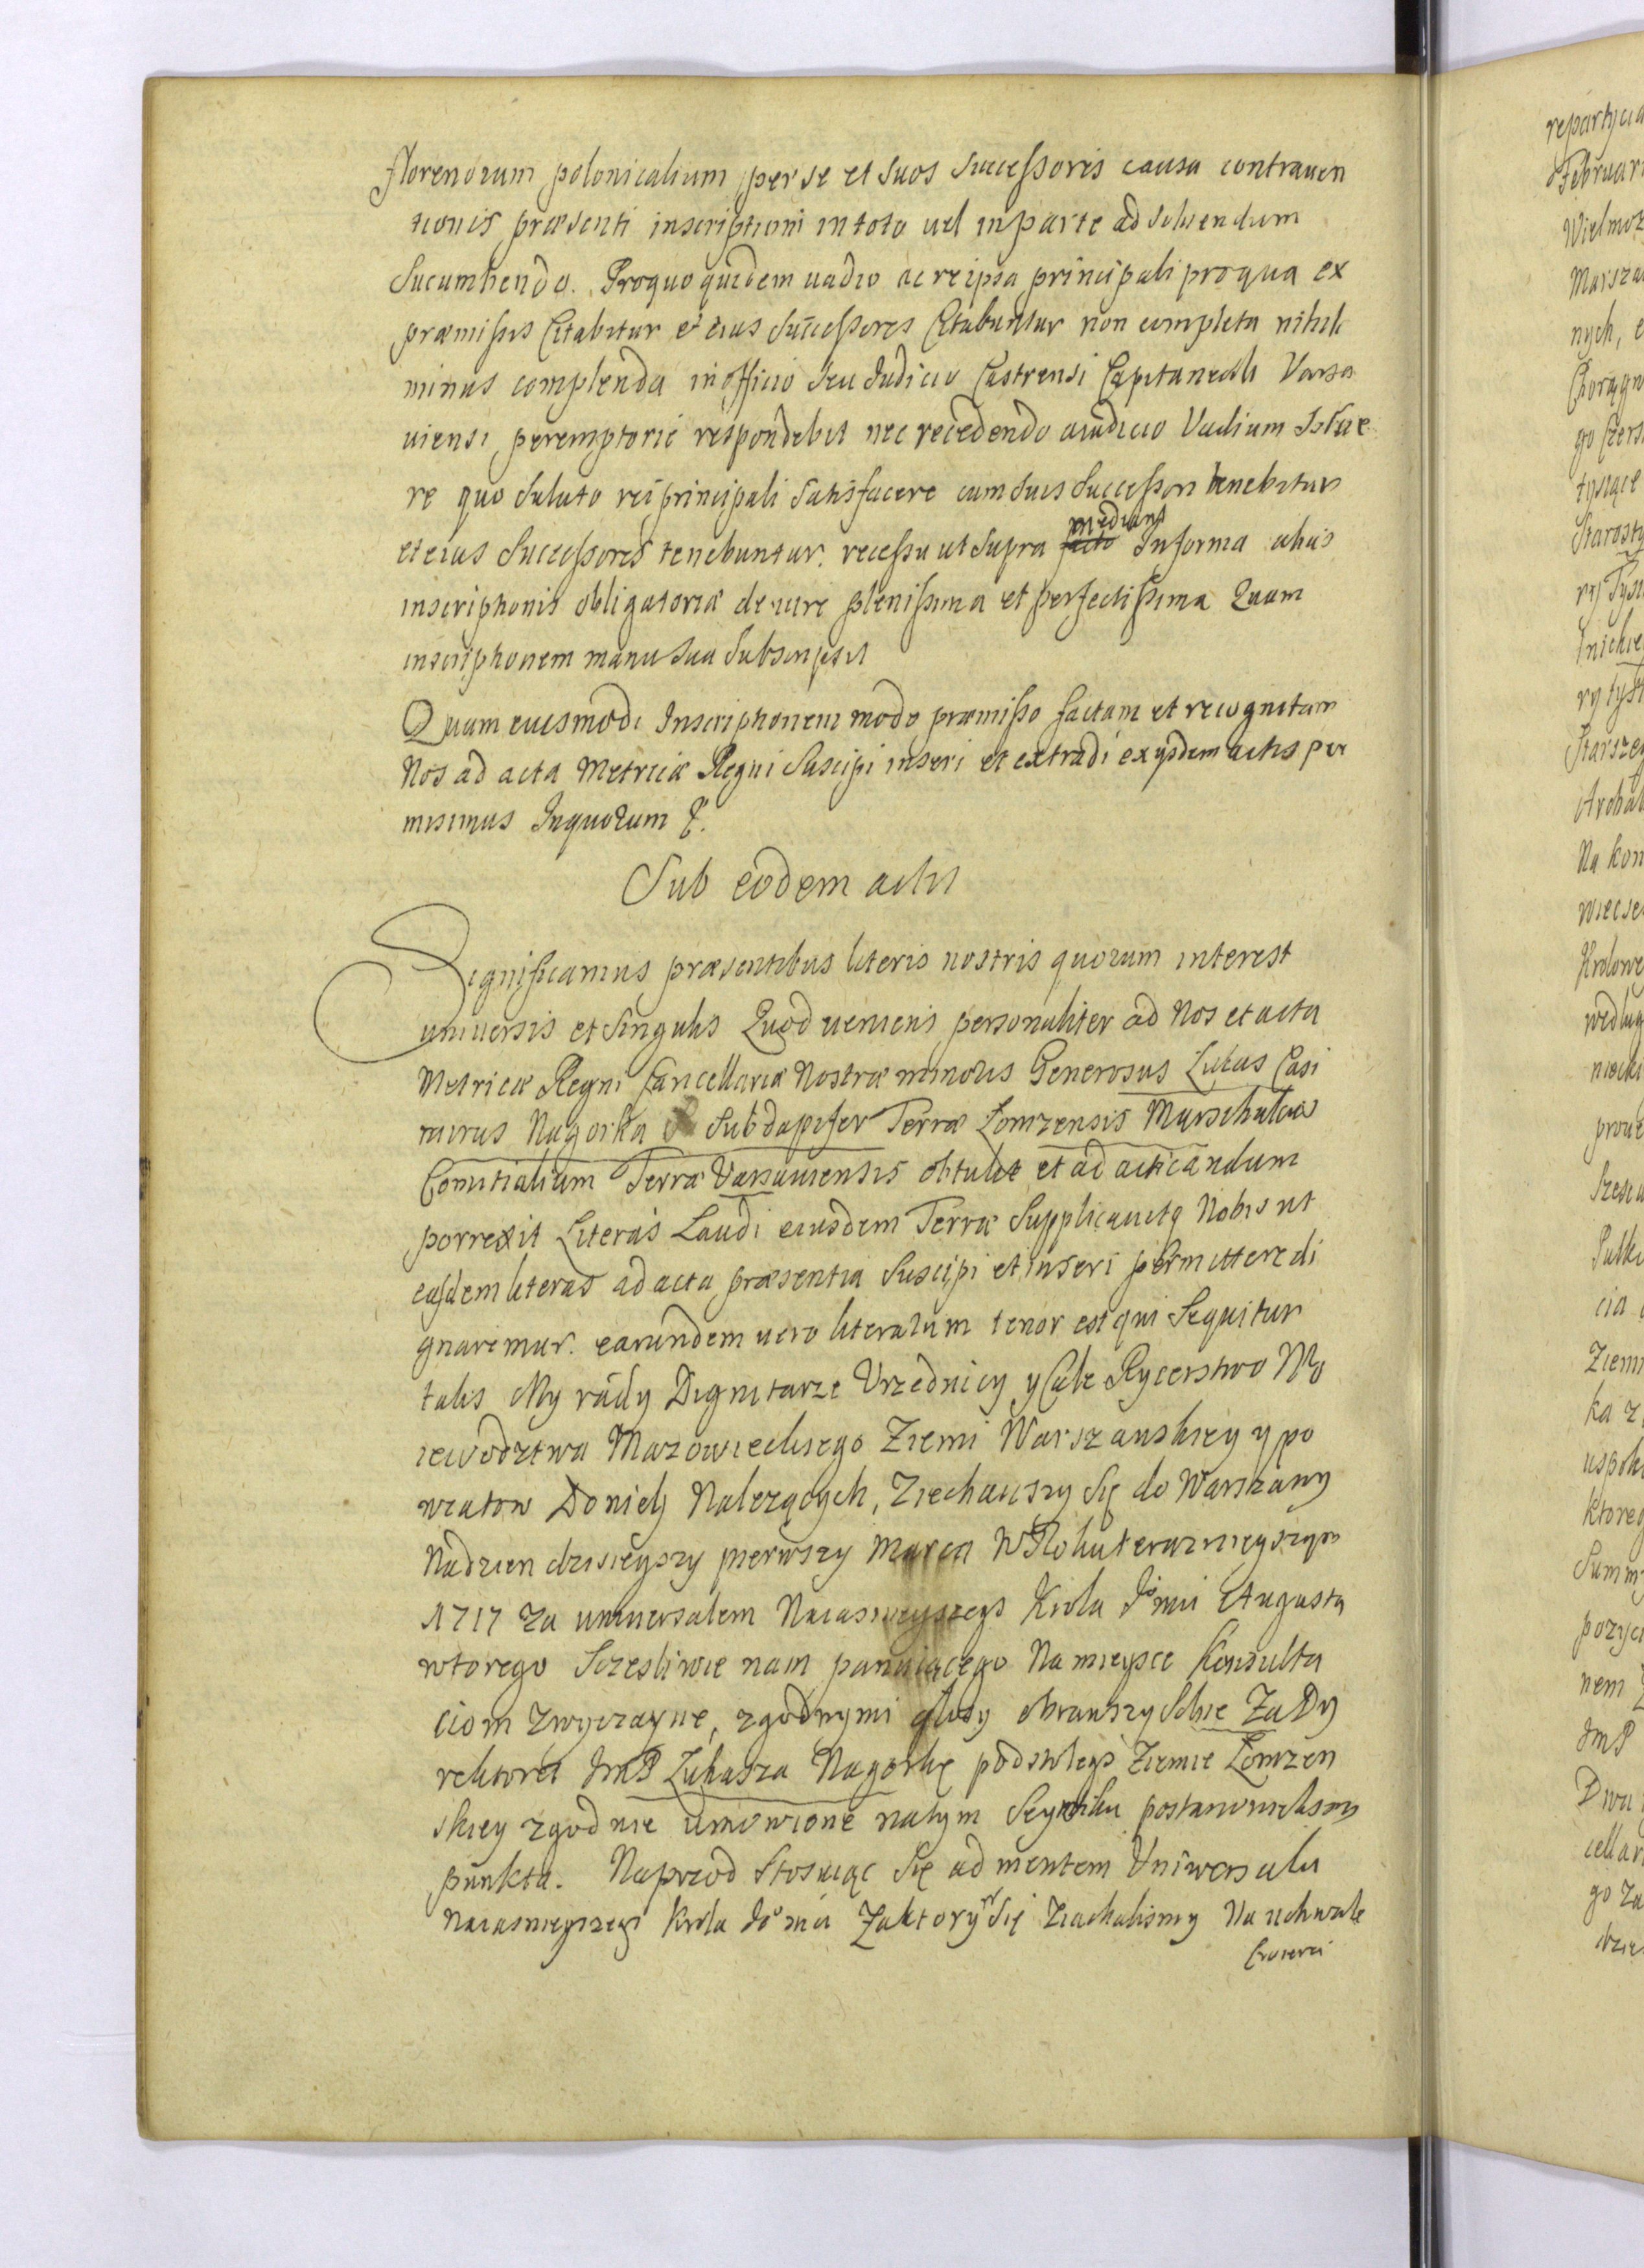 Florenorum polonicalium per se et suos successoris causa contrauen
tionis præsenti inscriptioni in toto uel in parte ad soluendum
sucumbendo. Pro quo quidem uadio ac re ipsa principali pro qua ex
præmissis Citabitur et eius successores Citabuntur non completa nihilo
minus complenda in officio seu Judicio Castrensi Capitaneali Varsa
uiensi peremptorie respondebit nec recedendo a iudicio Vadium Istue
re quo soluto rei principali satisfacere cum suis Successori tenebitur
et eius Successores tenebuntur. recessu ut supra mediante In forma alias
inscriptionis obligatoriæ de iure plenissima et perfectissima Quam
inscriptionem manu sua subscripsit
Quam eiusmodi Inscriptionem modo præmisso factam et recognitam
Nos ad acta Metricæ Regni suscipi inseri et extradi ex ijsdem actis per
misimus In quorum &.
Sub eodem actu
Significamus præsentibus literis nostris quorum interest
uniuersis et singulis Quod ueniens personaliter ad Nos et acta
Metricæ Regni Cancellariæ Nostræ minoris Generosus Lucas Casi
mirus Nagorka Subdapifer Terræ Lomzensis Marschalcus
Comitialium Terræ Varsauiensis obtulit et ad acticandum
porrexit Literas Laudi eiusdem Terræ Supplicauitq Nobis ut
easdem literas ad acta præsentia suscipi et inseri permittere di
gnaremur. earundem uero literarum tenor est qui sequitur
talis My rady Dignitarze Vrzednicy y Całe Rycerstwo Wo
iewodztwa Mazowieckiego Ziemi Warszauskiey y po
wiatow Do nich Nalezących, Ziechawszy się do Warszawy
Na dzien dzisieyszy pierwszy Marca W Roku terazniejszym
1717 Za uniuersalem Naiasnieyszego Krola Jo mci Augusta
wtorego Szczesliwie nam panuiącego Na mieysce Konsulta
ciom zwyczayne, zgodnymi głosy obrawszy sobie Za Dy
rektora Jm P Łukasza Nagorkę podstolego Ziemie Łomzen
skiey zgodnie umowione na tym Seymiku postanowilismy
punkta. Naprzod stosuiąc się ad mentem Vniwersału
Naiasnieyszego Krola Jo mci Za ktorym się Ziachalismy Na uchwałe